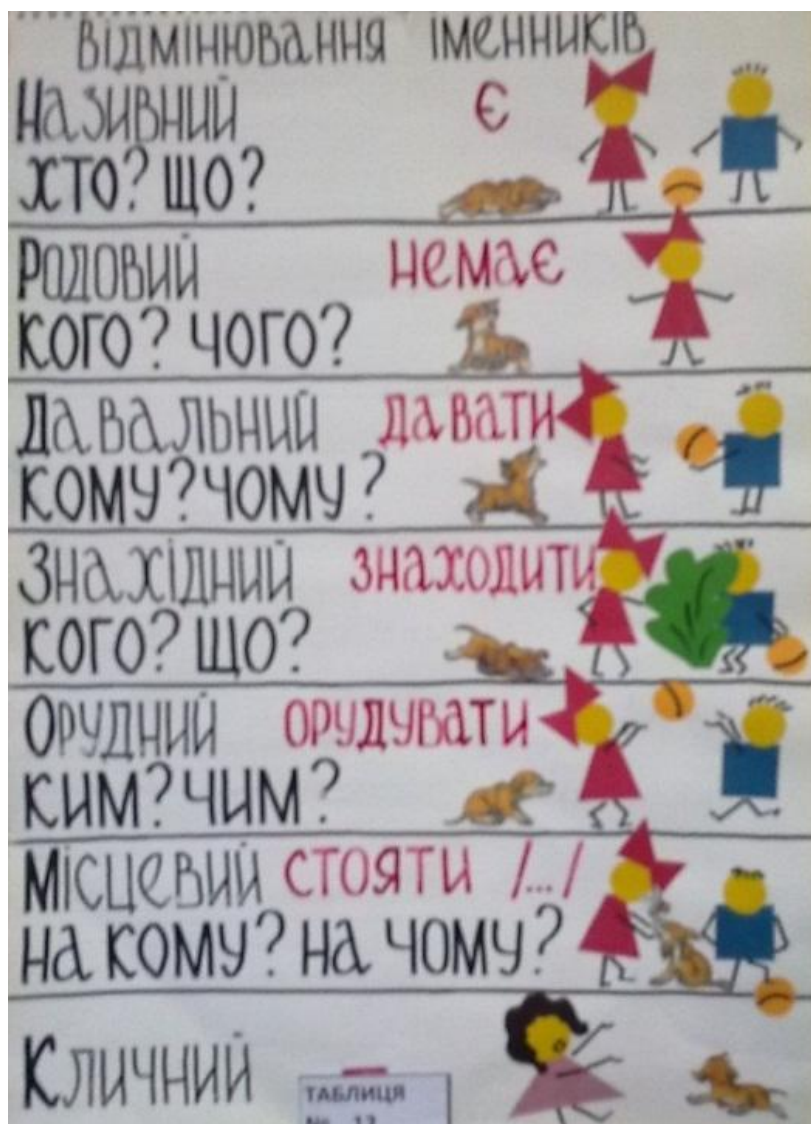 Відмінювання іменників
Називний є
хто? що?
Родовий немає
кого? чого?
Давальний давати
кому? чому?
Знахідний знаходити
кого? що?
Орудний орудувати
ким? чим?
Місцевий стояти /.../
на кому? на чому?
Кличний
ТАБЛИЦЯ
№ 13